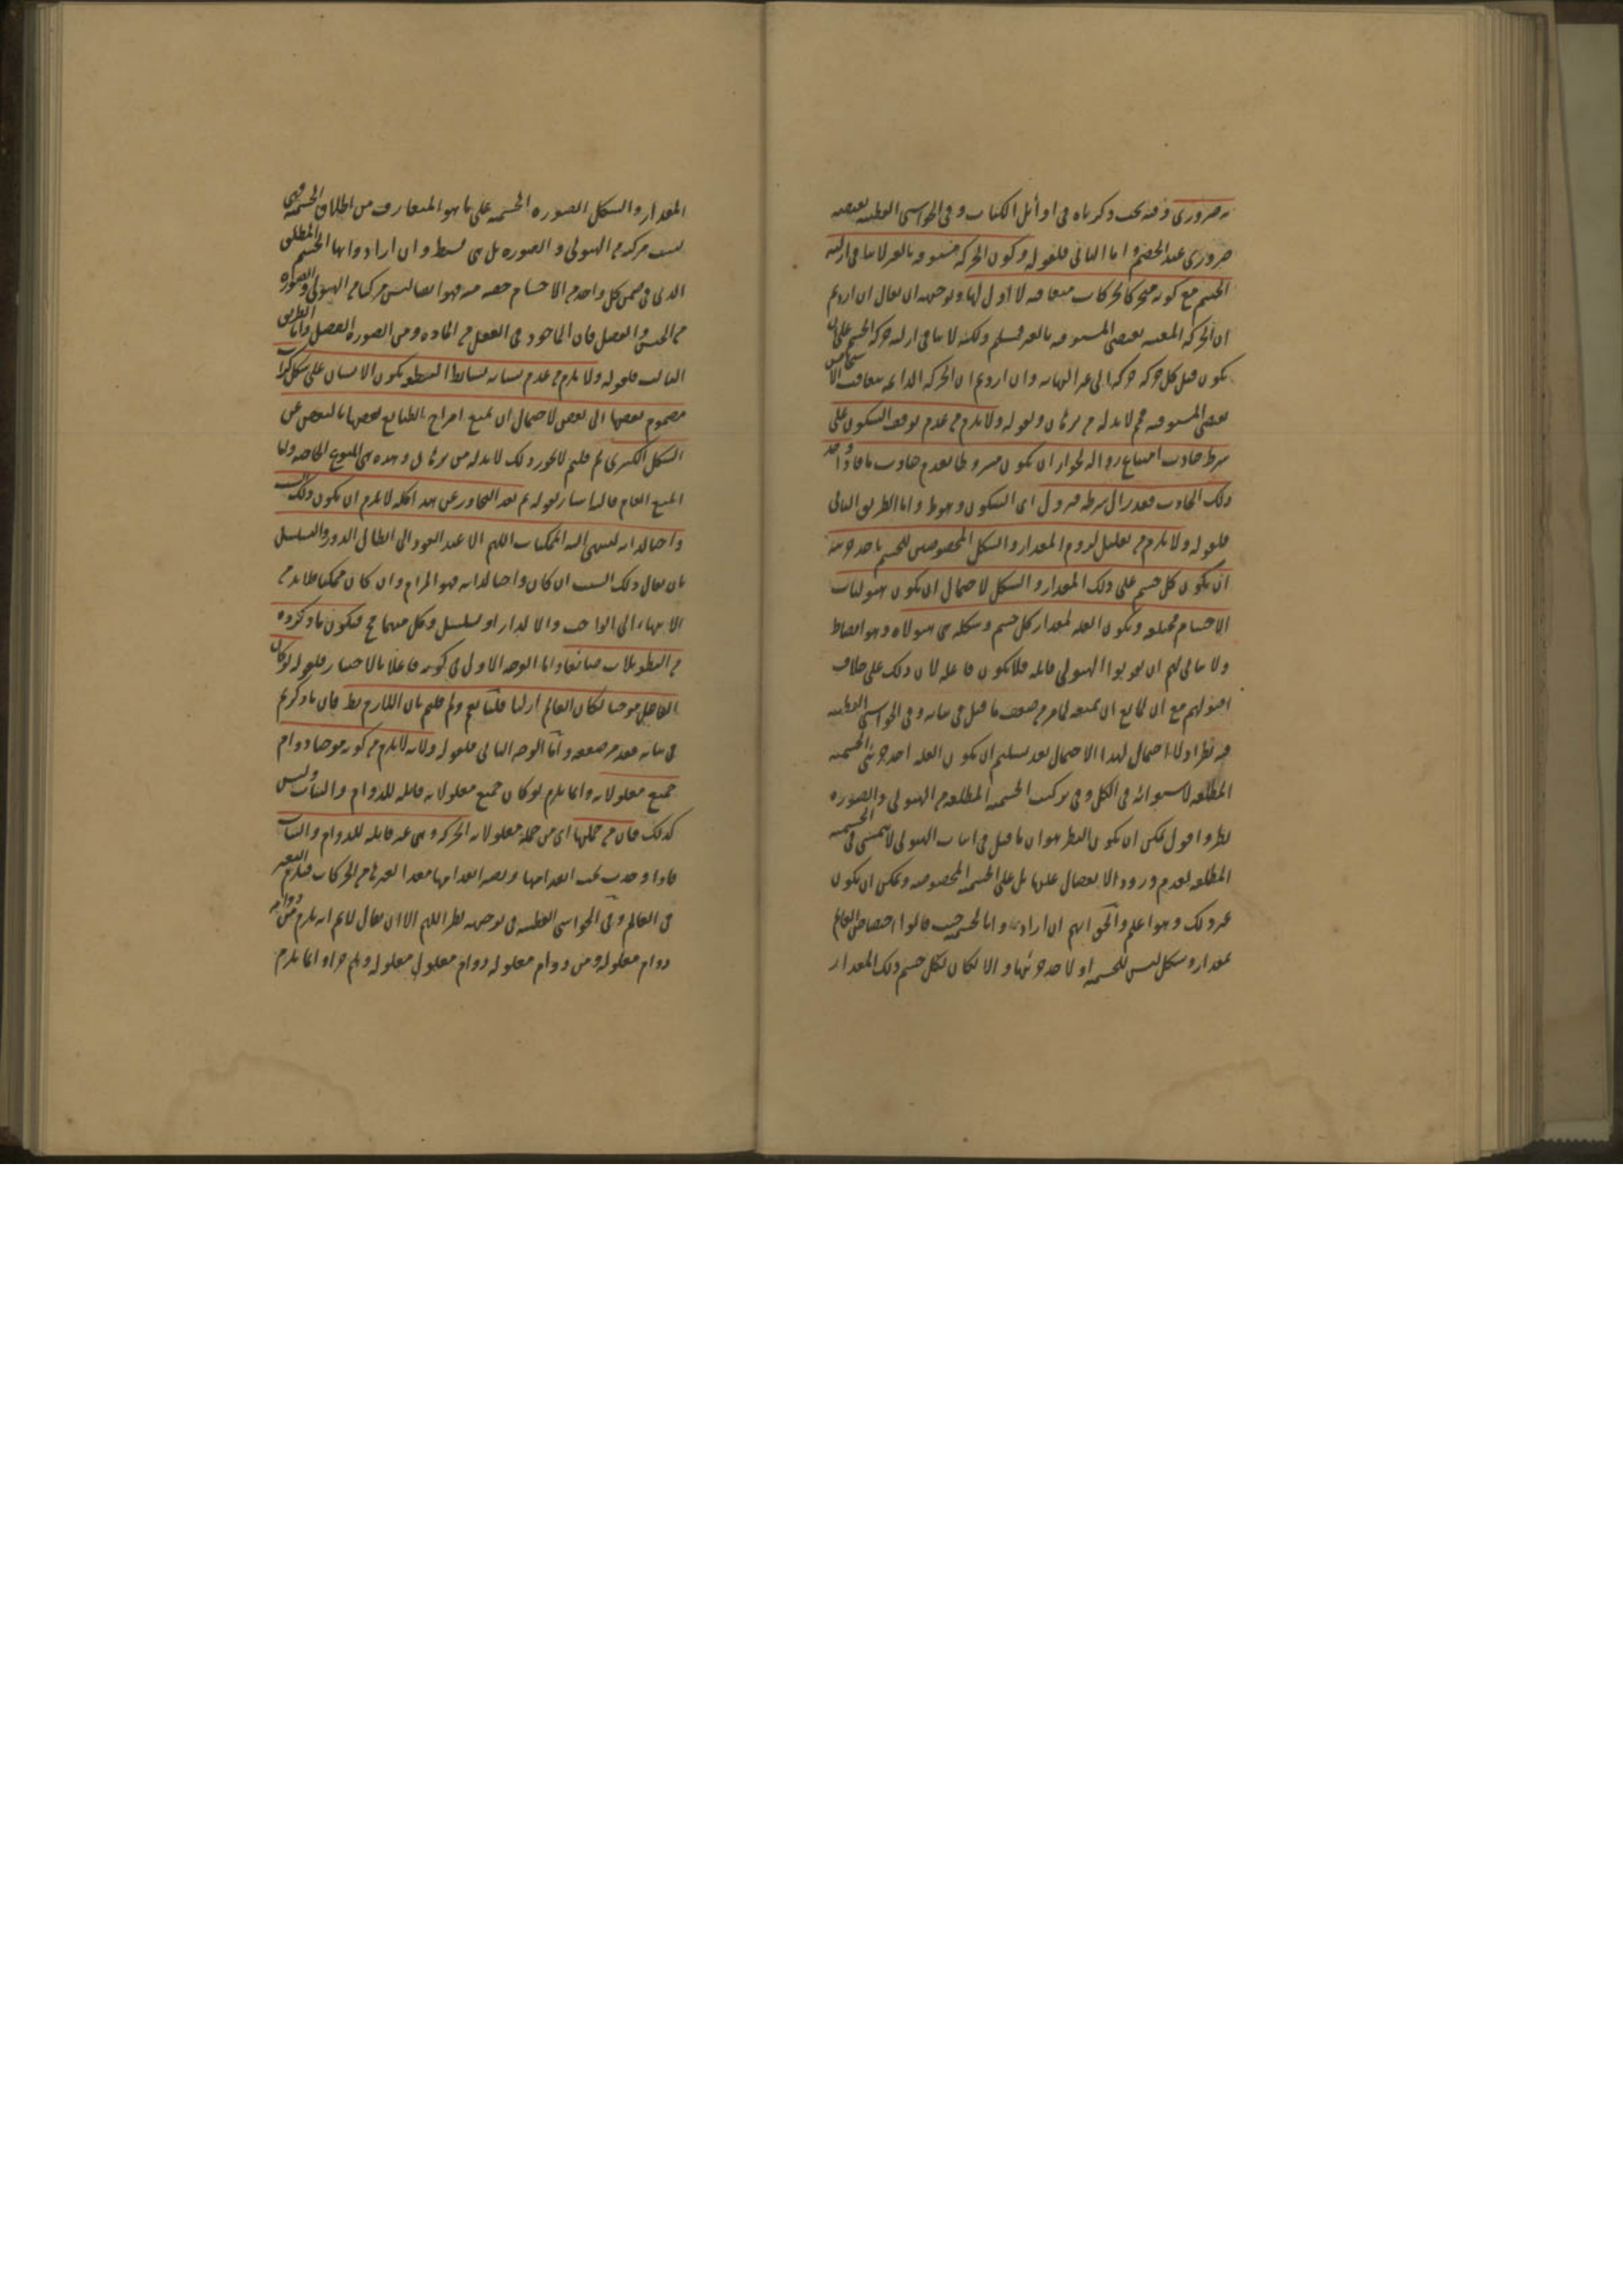 ضروري وفيه بحث ذكرناه في اوائل الكتاب وفي الحواشي القطبية
ضروري عند الخصم واما الثاني فلقوله وكون الحركة مسبوقة بالغير لا ينافي ازلية
الجسم مع كونه متحركا بحركات متعاقبة لا اول لها وتوجيهه ان يقال ان اردتم
ان الحركة المعينة تقتضي المسبوقية بالغير فمسلم ولكنه لا ينافي ازلية حركة الجسم على ان
يكون قبل كل حركة حركة الى غير النهاية وان اردتم ان الحركة الدائمة بتعاقب
تقتضي المسبوقية فلا بد له من برهان وقوله ولا يلزم من عدم توقف السكون على
شرط حادث امتناع زواله لجواز ان يكون مشروطا بعدم حادث ما فاذا وجد
ذلك الحادث فقد زال شرطه فيزول اي السكون وهو ظ واما الطريق الثاني
فلقوله ولا يلزم من تعليل لزوم المقدار والشكل المخصوصين للجسم باحد جزئيه
ان يكون كل جسم على ذلك المقدار والشكل لاحتمال ان يكون هيوليات
الاجسام مختلفة ويكون العلة لمقدار كل جسم وشكله هي هيولاه وهو
ولا يتأتى لهم ان يقولوا الهيولى قابلة فلا تكون فاعلة لان ذلك على خلاف
اصولهم مع ان لمانع ان يمنعه لما مر من ضعف ما قيل في بيانه وفي الحواشي القطبية
فيه نظر اذ لا احتمال لهذا الاحتمال بعد تسليم ان يكون العلة احد جزئي الجسمية
المطلقة لاستوائه في الكل وفي تركب الجسمية المطلقة من الهيولى والصورة
نظر واقول يمكن ان يكون النظر هو ان ما قيل في اثبات الهيولى لا يتمشى في الجسمية
المطلقة لعدم ورود الانفصال عليها بل على الجسمية المخصوصة ويمكن ان يكون
غير ذلك وهو اعلم والحق انهم ان ارادوا بالجسمية حيث قالوا اختصاص العالم
بمقدار وشكل ليس للجسمية او لاحد جزئيها والا لكان لكل جسم ذلك المقدار
المقدار والشكل الصورة الجسمية على ما هو المتعارف من اطلاق الجسمية فهي
ليست مركبة من الهيولى والصورة بل هي بسيطة وان ارادوا بها الجسم المطلق
الذي في ضمن كل واحد من الاجسام حصة منه فهو ايضا ليس مركبا من الهيولى والصورة
من الجنس والفصل فان الماخوذ في العقل من المادة ومن الصورة الفصل واما الطريق
الثالث فلقوله ولا يلزم من عدم بساطة البسيط كون الانسان على شكل كرات
مضموم بعضها الى بعض لاحتمال ان يمنع امزاج الطبائع بعضها بالبعض عن
الشكل الكري لم قلتم لا يجوز ذلك لا بد له من برهان وهذه هي المنوع الخاصة واما
المنع العام فاليه اشار بقوله ثم بعد التجاوز عن هذا كله لا يلزم ان يكون ذلك السبب
واجبا لذاته لتنتهي اليه الممكنات اللهم الا عند العود الى ابطال الدور والتسلسل
بان يقال ذلك السبب ان كان واجبا لذاته فهو المرام وان كان ممكنا فلا بد من
الانتهاء الى الواجب والا لدار او تسلسل وكل منهما مح فيكون ما ذكروه
من التطويلات ضائعا واما الوجه الاول في كونه فاعلا بالاختيار فلقوله لو كان
الفاعل موجبا لكان العالم ازليا قلنا نعم ولم قلتم بان اللازم بط فان ما ذكرتم
في بيانه فقد مر ضعفه واما الوجه الثاني فلقوله ولانه لا يلزم من كونه موجبا دوام
جميع معلولاته وانما يلزم لو كان جميع معلولاته قابلة للدوام والثبات وليس
كذلك فان من جملتها اي من جملة معلولاته الحركة وهي غير قابلة للدوام والثبات
فاذا وجدت يجب انعدامها ويصير انعدامها معدا لغيرها من الحركات فيلزم التغير
في العالم وفي الحواشي القطبية في توجيهه نظر اللهم الا ان يقال لا نم انه يلزم من دوامه
دوام معلوله ومن دوام معلوله دوام معلول معلوله وهلم جرا وانما يلزم